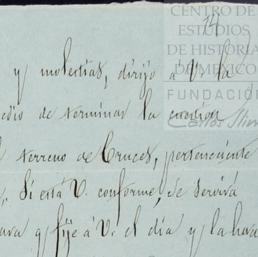 CENTRO DE
ESTUDIOS
DE HISTORIA
DE MEXICO
FUNDACIÓN
Carlos Slim
14
y molestias, dirijo á V. la
medio de terminar la cuestion
terreno de Cruces, perteneciente
Si está V. conforme, se servirá
para q fije á V. el dia y la hora